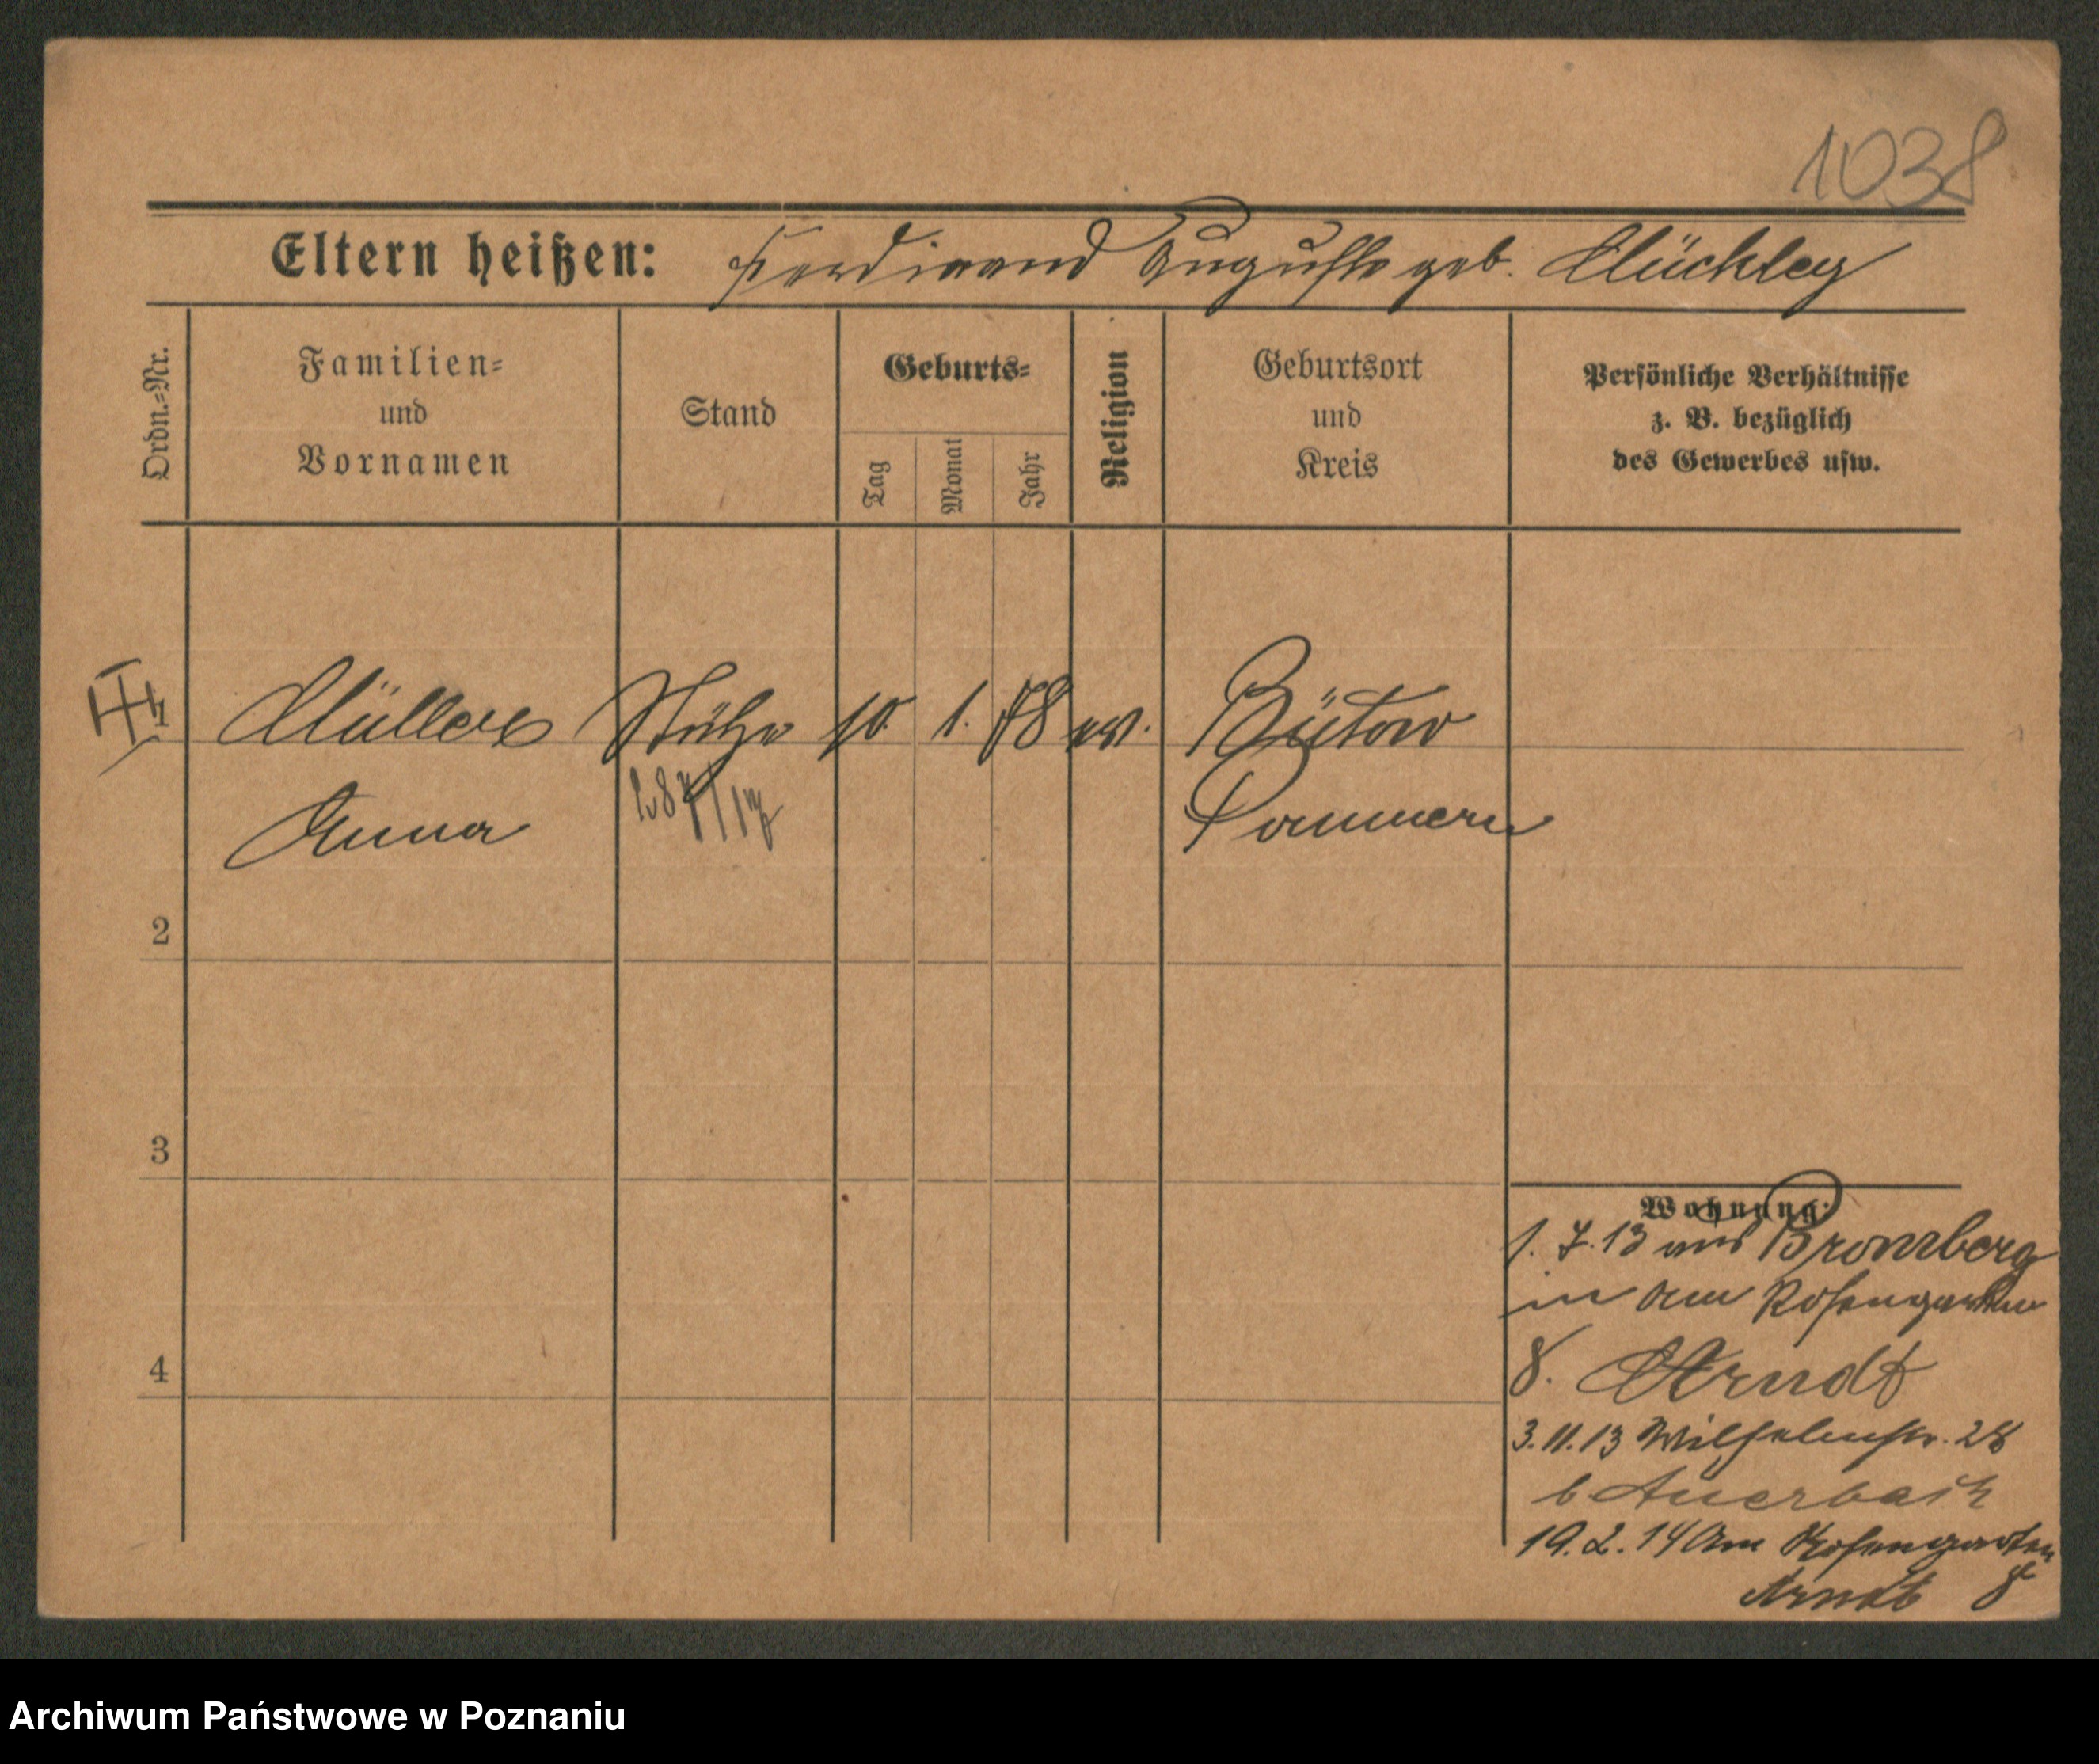 1038
Eltern heißen: Ferdinand Auguste geb. Mückley
Ordn.-Nr.
Familien-
und
Vornamen
Stand
Geburts-
Tag
Monat
Jahr
Religion
Geburtsort
und
Kreis
Persönliche Verhältnisse
z. B. bezüglich
des Gewerbes usw.
1 Müller Stütze 10. 1. 78 ev. Bütow
Anna Pommern
2
3
4
Wohnung:
1. 7. 13 aus Bromberg
in Am Rosengarten
8. Arndt
3. 11. 13 Wilhelmstr. 28
b Auerbach
19. 2. 14 Am Rosengarten
Arndt 8
Archiwum Państwowe w Poznaniu